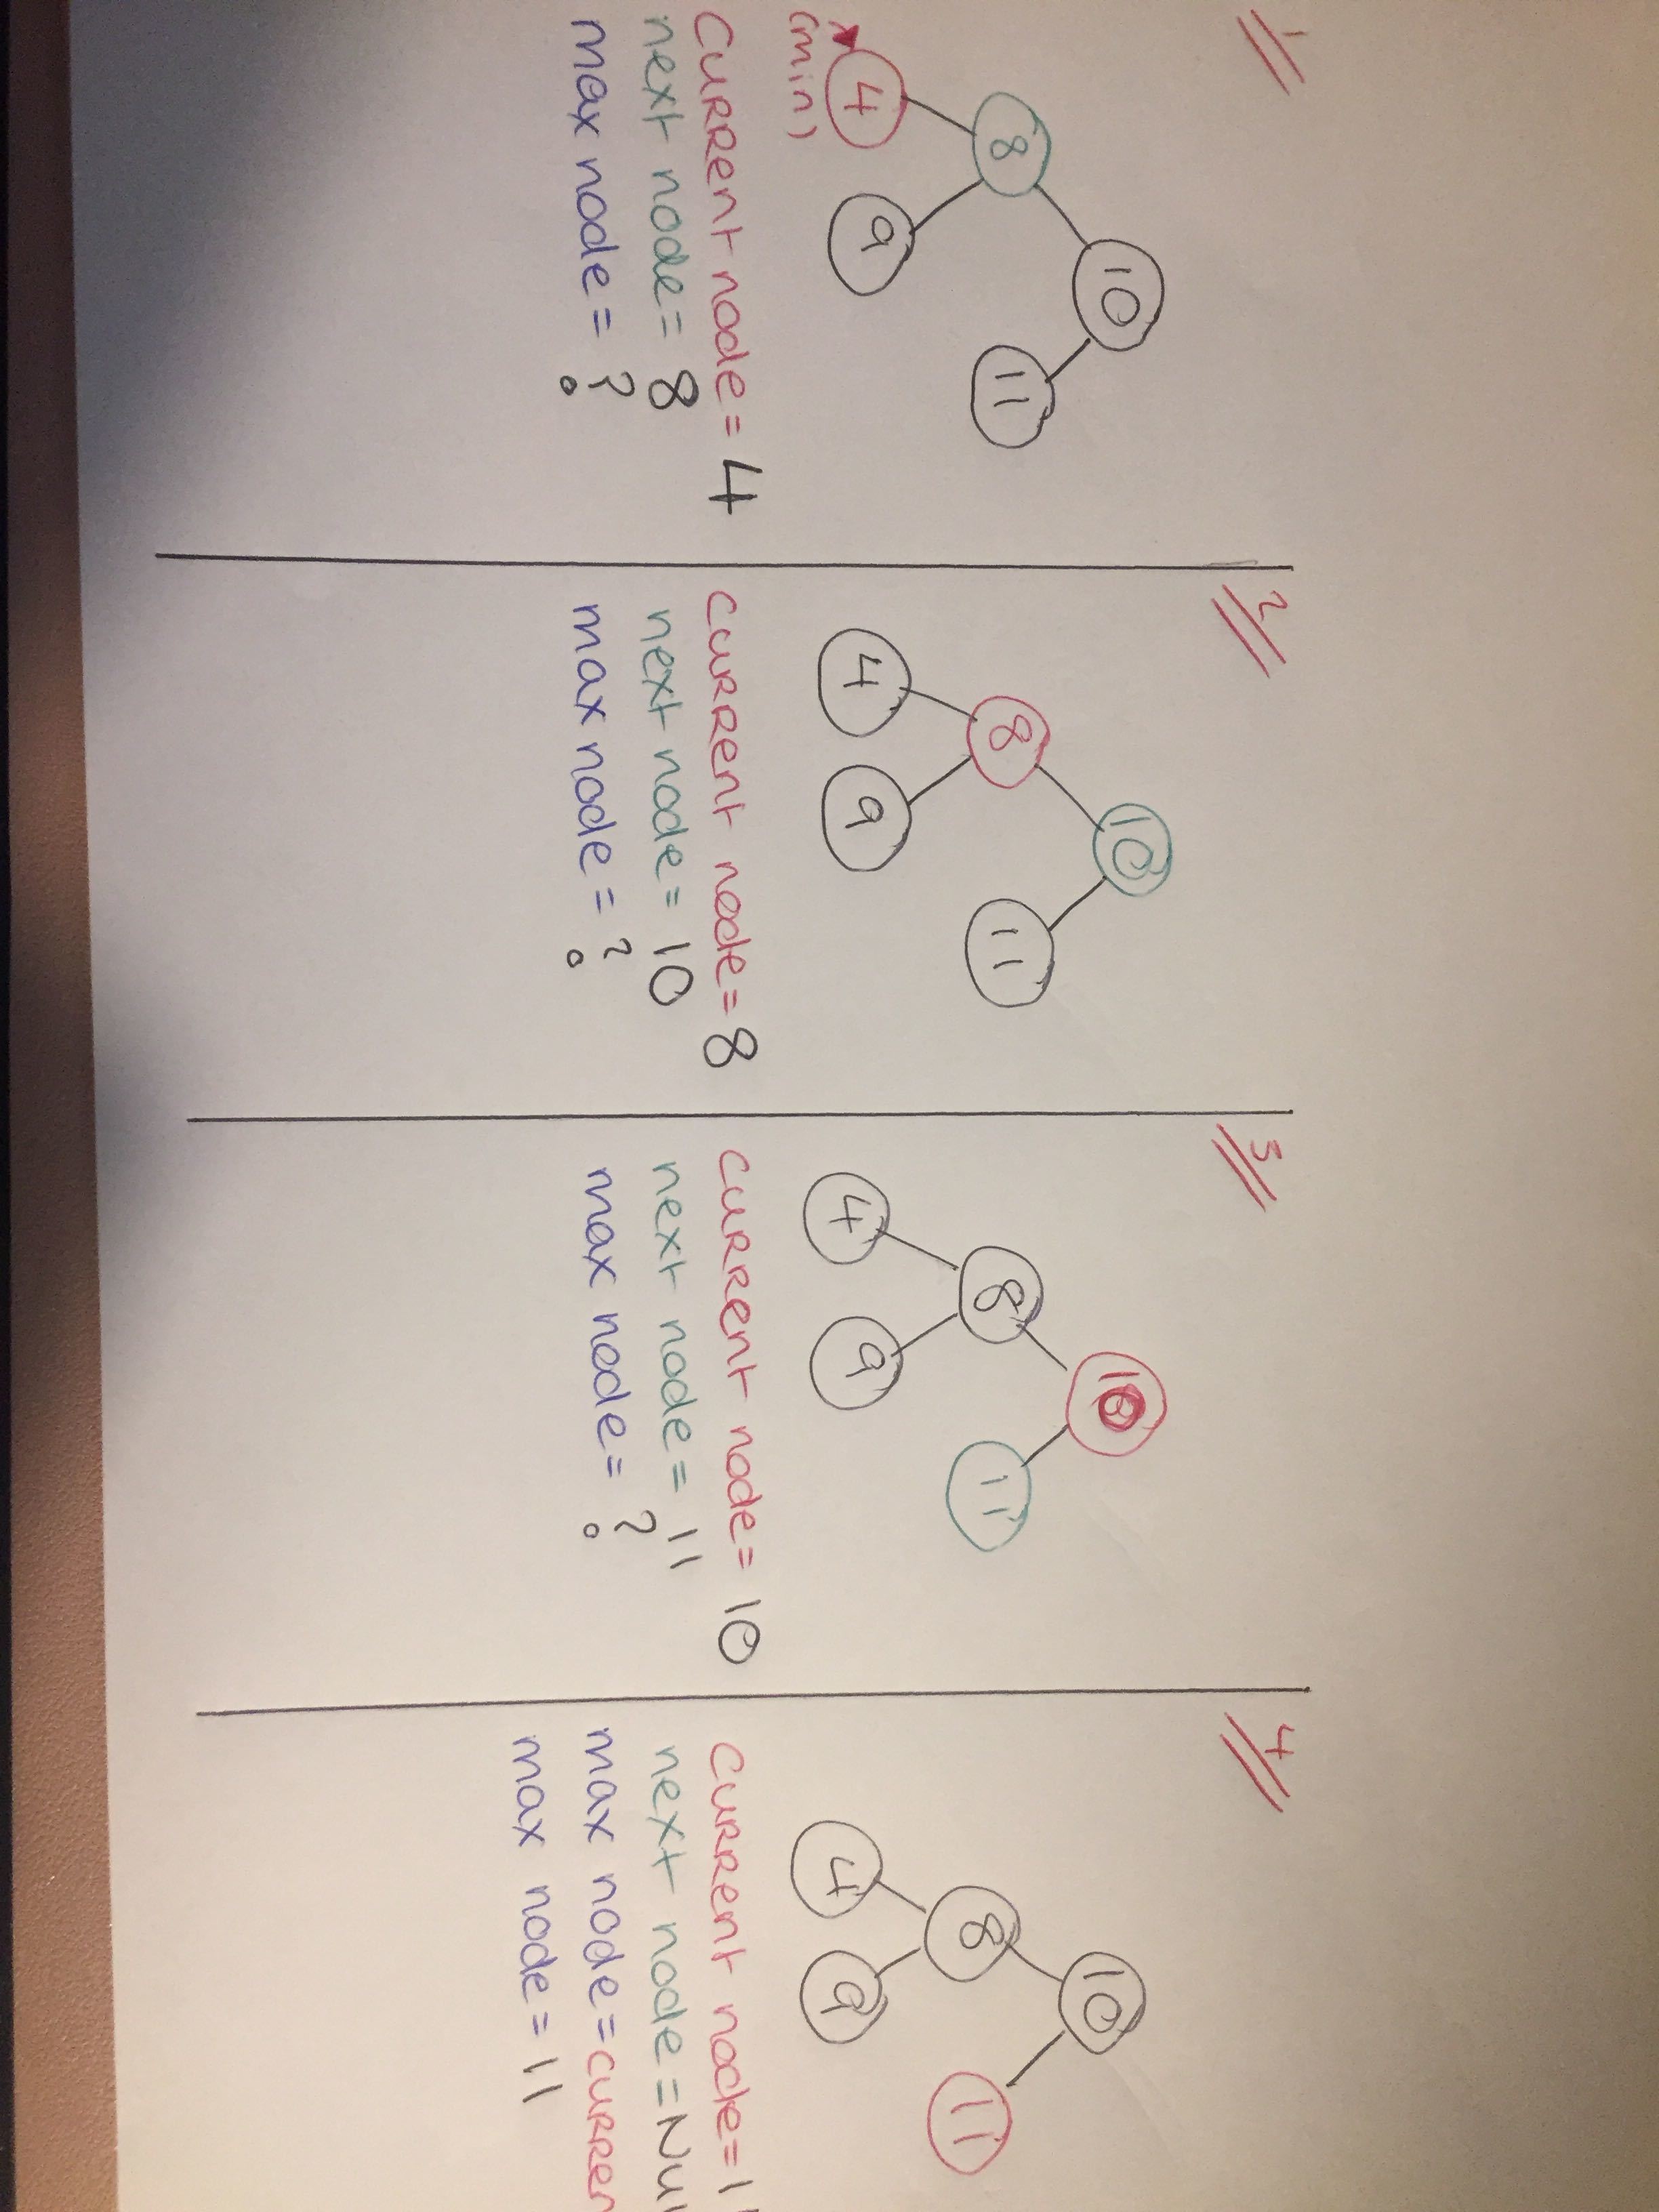 1
10
8
11
4
9
(min)
Current node = 4
next node = 8
max node = ?
2
10
8
11
4
9
Current node = 8
next node = 10
max node = ?
3
10
8
11
4
9
Current node = 10
next node = 11
max node = ?
4
10
8
11
4
9
Current node = 1
next node = Nul
max node = curren
max node = 11